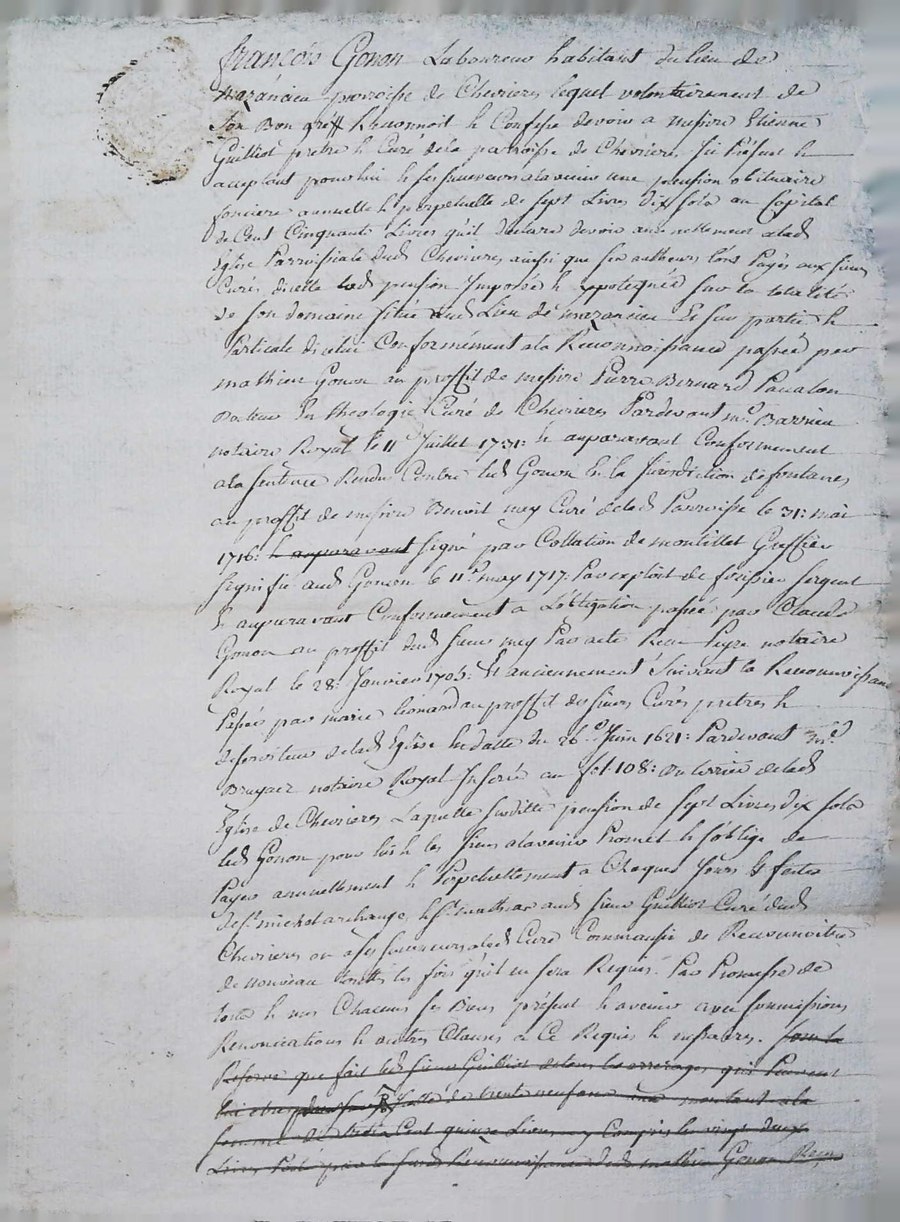 françois Gonon Laboureur habitant du lieu de
marancieu parroisse de Chevrieres lequel volontairement de
son Bon gré Reconnoit & Confesse devoir a messire Etienne
Guilliot pretre & Curé de la parroisse de Chevrieres Ici Présent &
acceptant pour lui & ses successeurs a la cure une pension obituaire
fonciere annuelle & perpetuelle de sept Livres dix sols au Capital
de Cent Cinquante Livres qu'il declare devoir annuellement a lad
église Parroissiale dud Chevrieres ainsi que ses autheurs l'ont Payés aux sieurs
Curés d'icelle lad pension Imposée & ypotequée sur la totalité
de son domaine situé aud Lieu de marancieu Et sur partie &
Particule d'icelui Conformément a la Reconnoissance passée par
mathieu Gonon au proffit de messire Pierre Bernard
Docteur En theologie Curé de Chevrieres Pardevant me. Barrieu
notaire Royal le 11e Juillet 1731: & auparavant Conformement
a la sentence Rendue Contre led Gonon En la Jurisdiction de fontanes
au proffit de messire Benoit mey Curé de lad Parroisse le 31: mai
1716: & auparavant signé par Collation de montillet Greffier
signifié aud Gonon le 11e may 1717: Par exploit de sergent
& auparavant Conformement a L'obligation passée par Claude
Gonon au proffit dud sieur mey Par acte Recu notaire
Royal le 28: Janvier 1705: & anciennement suivant la Reconnoissance
Passée par marie Leonard au proffit des sieurs Curés pretres &
deserviteur de lad Eglise En datte du 26e Juin 1621: Pardevant me.
notaire Royal Inserée au fol. 108: du terrier de lad
Eglise de Chevrieres Laquelle susditte pension de sept Livres dix sols
led Gonon pour lui & les siens a l'avenir Promet & s'oblige de
Payer annuellement & Perpetuellement a Chaques Jours & festes
de st. michel archange, & st. mathias aud sieur Guilliot Curé dud
Chevrieres ou a ses successeurs a lad Cure Comm'aussi de Reconnoitre
de nouveau touttes les fois qu'il en sera Requis. Par Promesse de
tous & uns Chacuns ses Biens présent & avenir avec soumissions
Renonciations & autres Clauses a Ce Requis & nessaires. sous la
Reserve que fait led sieur Guilliot de tous les arrerages qui Peuvent
lui etre dus de trente neuf ans montant a la
somme de trois Cent quinze Livres y Compris les vingt deux
Livres Porté par la susd Reconnoissance dud mathieu Gonon